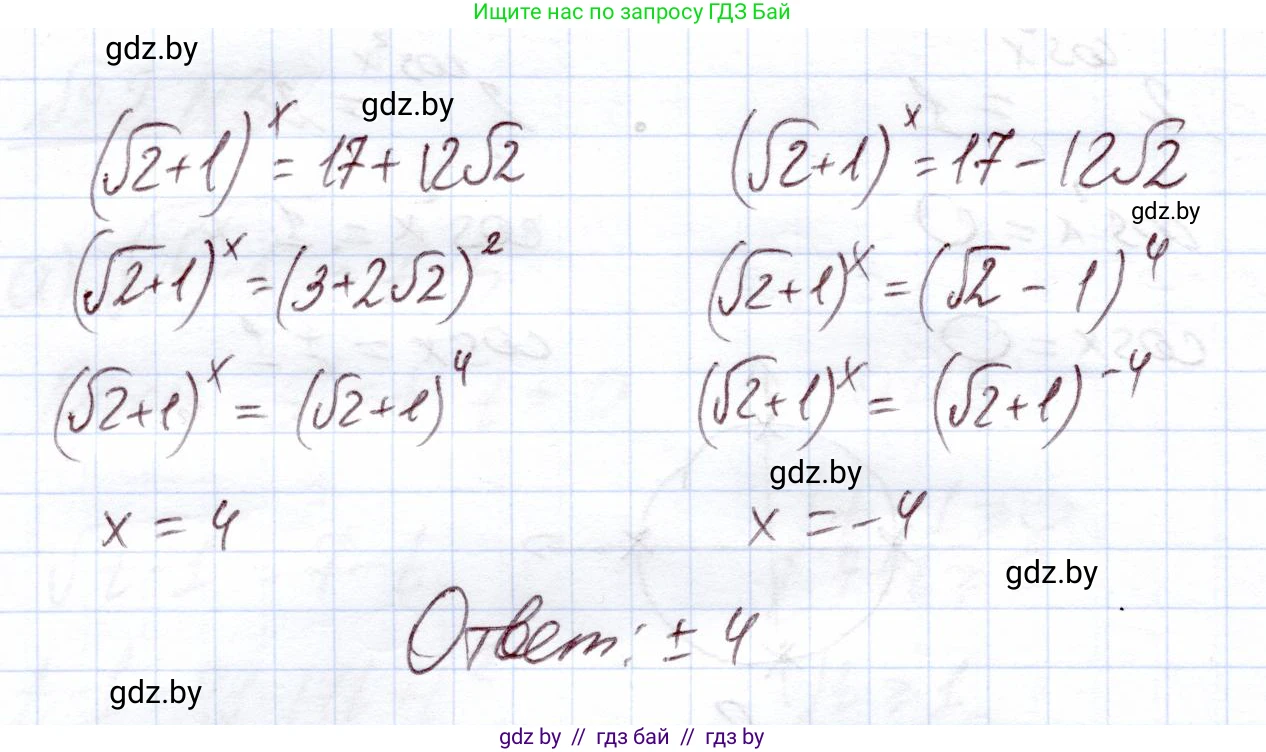 Ищите нас по запросу ГДЗ Бай
gdz.by
gdz.by
(√2+1)^x = 17+12√2
(√2+1)^x = (3+2√2)^2
(√2+1)^x = (√2+1)^4
x = 4
(√2+1)^x = 17-12√2
gdz.by
(√2+1)^x = (√2-1)^4
(√2+1)^x = (√2+1)^-4
gdz.by
x = -4
gdz.by
Ответ: ± 4
gdz.by
gdz by // гдз бай // gdz by